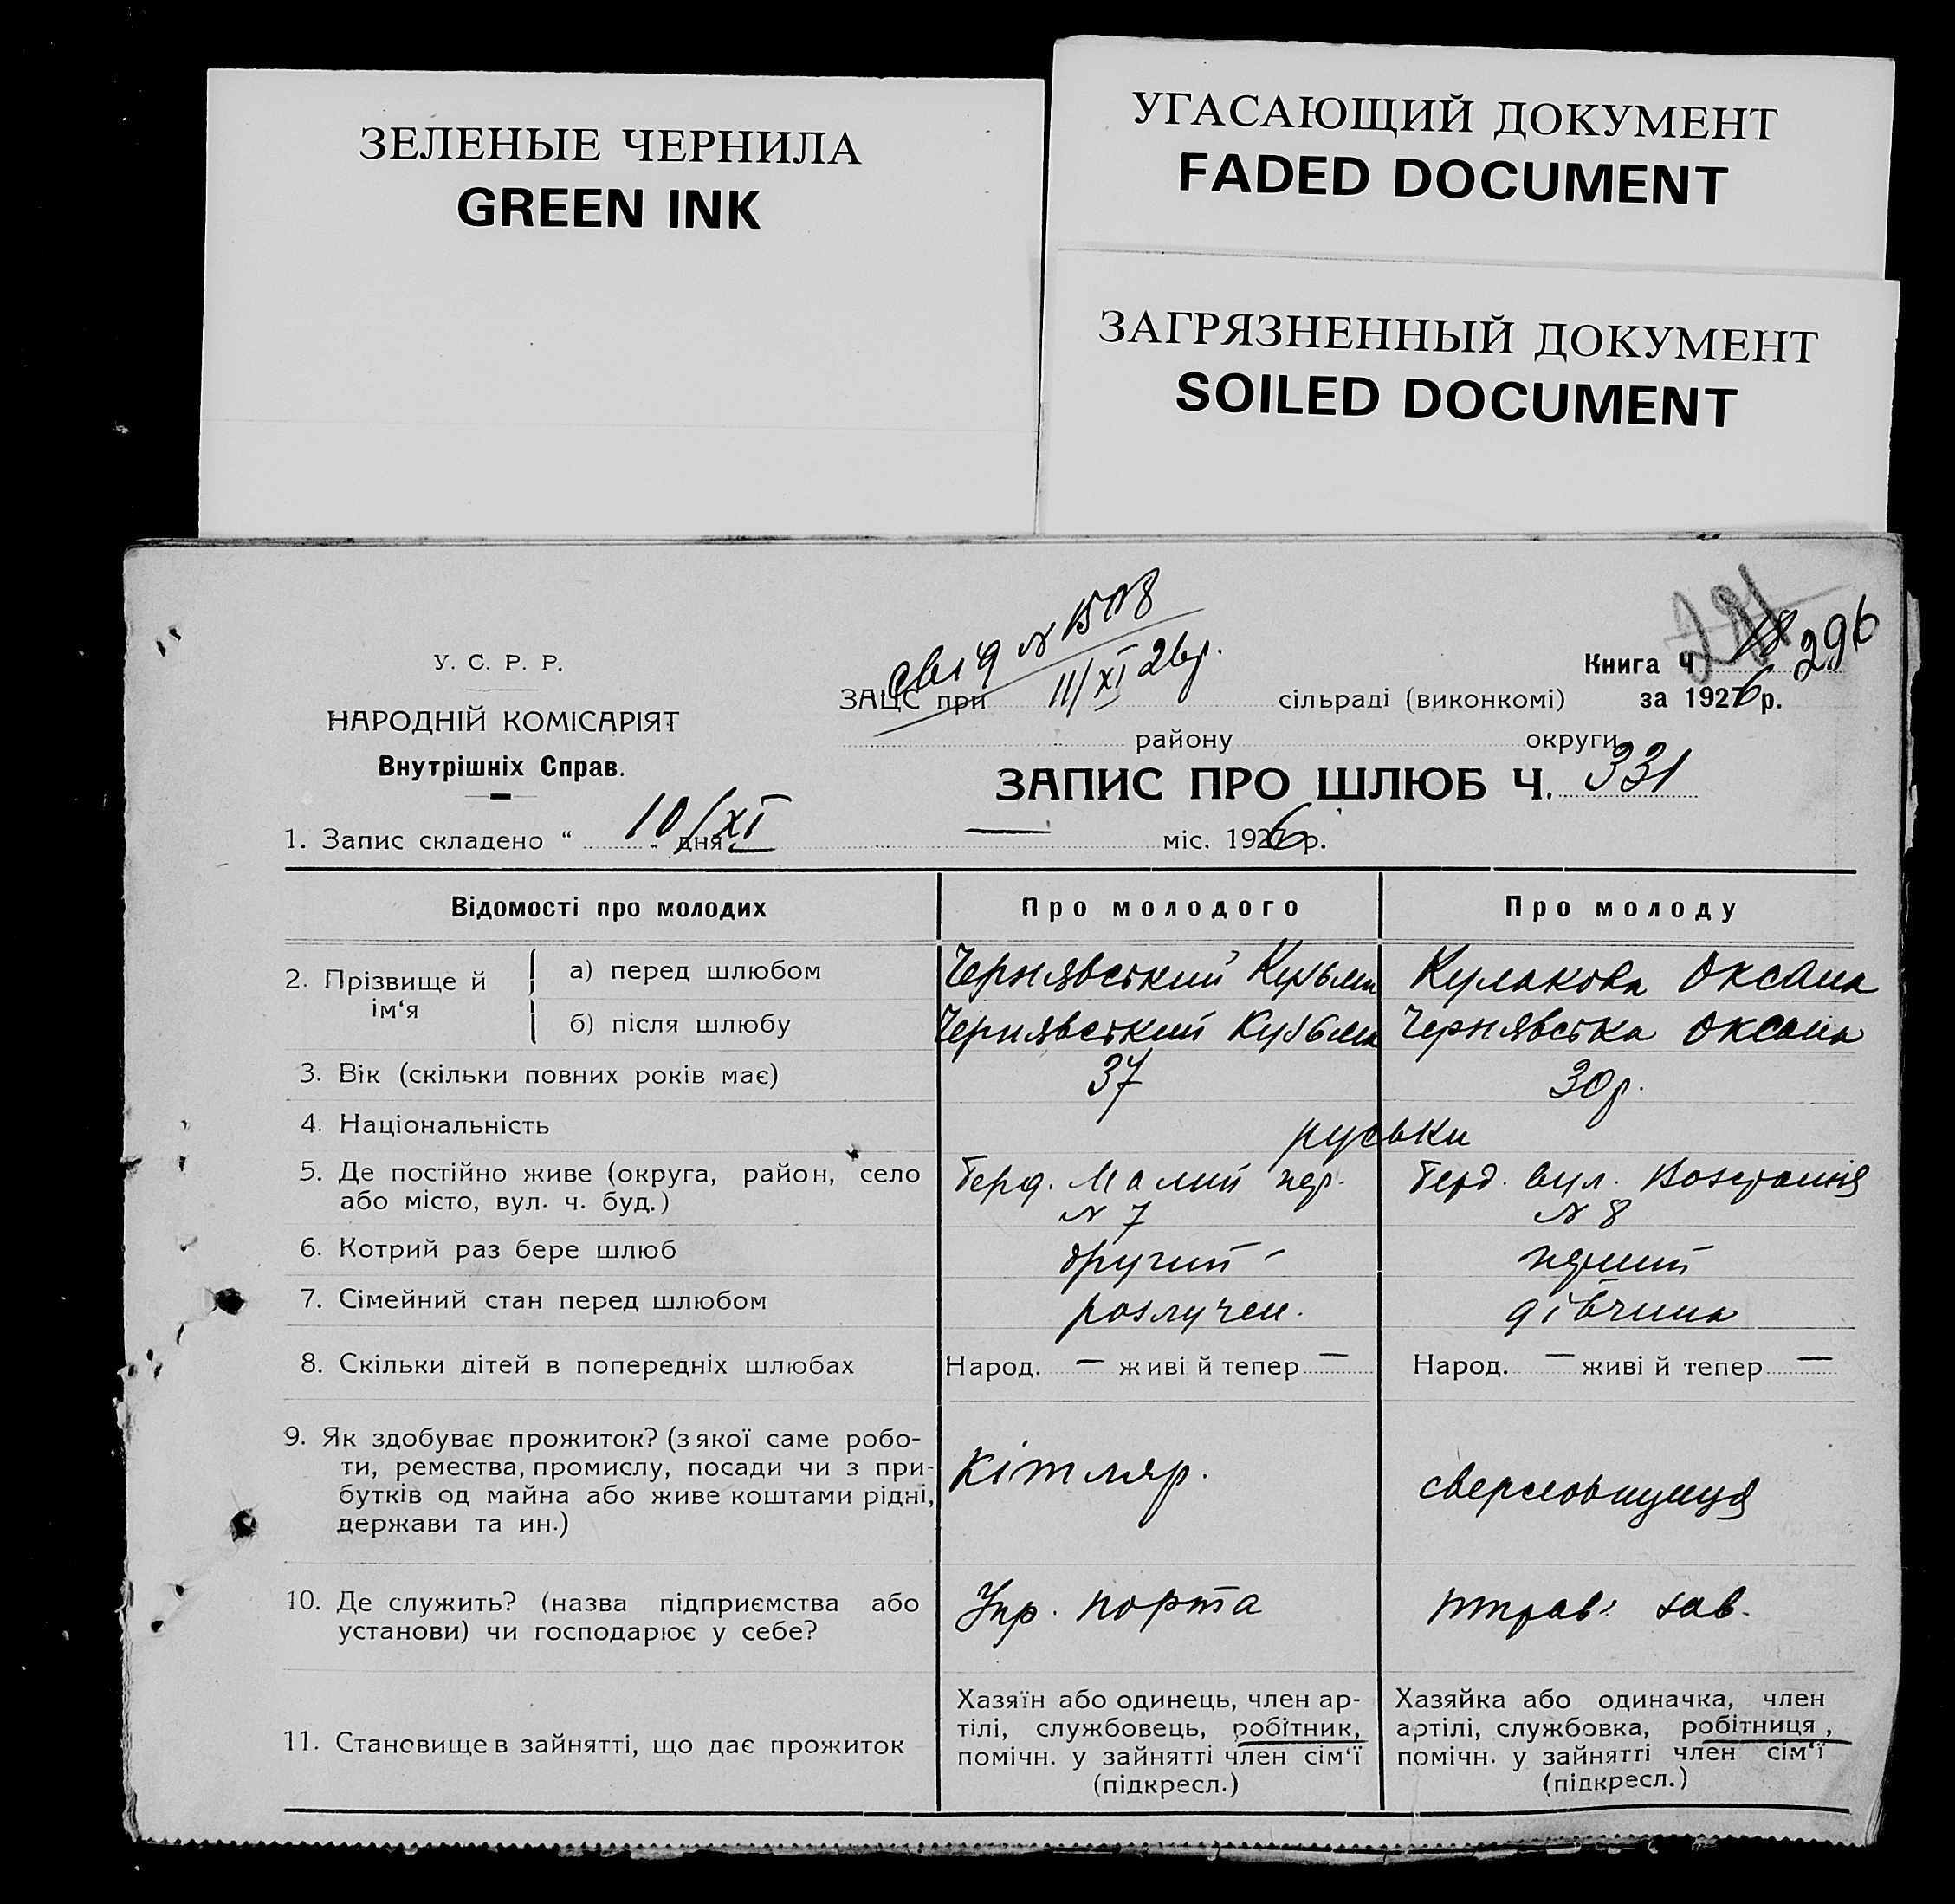 ЗЕЛЕНЫЕ ЧЕРНИЛА
GREEN INK
УГАСАЮЩИЙ ДОКУМЕНТ
FADED DOCUMENT
ЗАГРЯЗНЕННЫЙ ДОКУМЕНТ
SOILED DOCUMENT
№ 1508
11/XI 26 р.
У. С. Р. Р.
НАРОДНІЙ КОМІСАРІЯТ
Внутрішніх Справ.
Книга Ч 296
ЗАЦС при сільраді (виконкомі) за 1926 р.
району округи
ЗАПИС ПРО ШЛЮБ Ч. 331
1. Запис складено “ 10/XI дня міс. 1926 р.
Відомості про молодих Про молодого Про молоду
2. Прізвище й ім‘я
а) перед шлюбом Чернявський Кузьма Кулакова Оксана
б) після шлюбу Чернявський Кузьма Чернявська Оксана
3. Вік (скільки повних років має) 37 30 р.
4. Національність руськи
5. Де постійно живе (округа, район, село Берд. Малий пер. Берд. вул. Возстания
або місто, вул. ч. буд.) № 7 № 8
6. Котрий раз бере шлюб другий перший
7. Сімейний стан перед шлюбом розлучен. дівчина
8. Скільки дітей в попередніх шлюбах Народ. — живі й тепер — Народ. — живі й тепер —
9. Як здобуває прожиток? (з якої саме робо-
ти, ремества, промислу, посади чи з при- Кітляр.
бутків од майна або живе коштами рідні, сверловщиця
держави та ин.)
10. Де служить? (назва підприємства або Упр. порта зав.
установи) чи господарює у себе?
11. Становище в зайнятті, що дає прожиток
Хазяїн або одинець, член ар-
тілі, службовець, робітник,
помічн. у зайнятті член сім‘ї
(підкресл.)
Хазяйка або одиначка, член
артілі, службовка, робітниця,
помічн. у зайнятті член сім‘ї
(підкресл.)